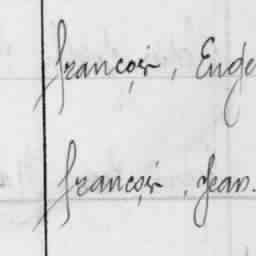 françois, Euge
françois, Jean.